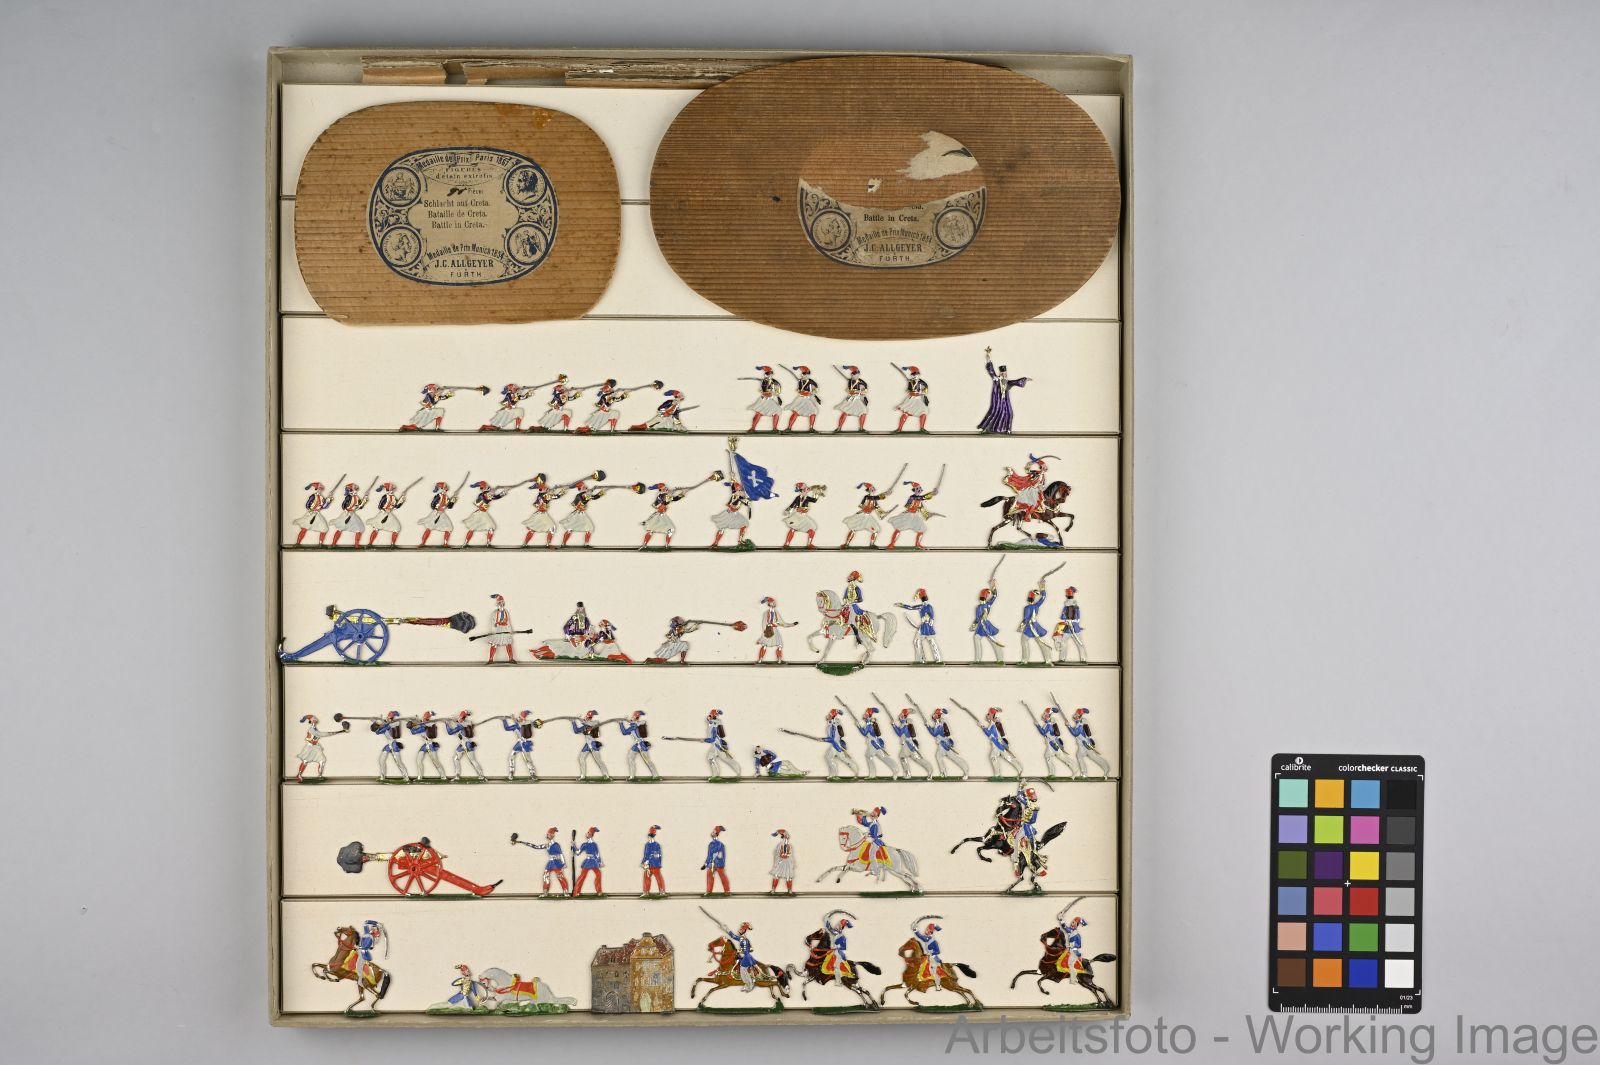 Medaille de Prix Paris 1867
FIGURES
d'étain extrafin
90 Pièces
Schlacht auf Creta.
Bataille de Creta.
Battle in Creta.
Medaille de Prix Munich 1854
J.C. ALLGEYER
FÜRTH
Battle in Creta.
Medaille de Prix Munich 1854
J.C. ALLGEYER
FÜRTH
calibrite colorchecker CLASSIC
01/23
mm
Arbeitsfoto - Working Image